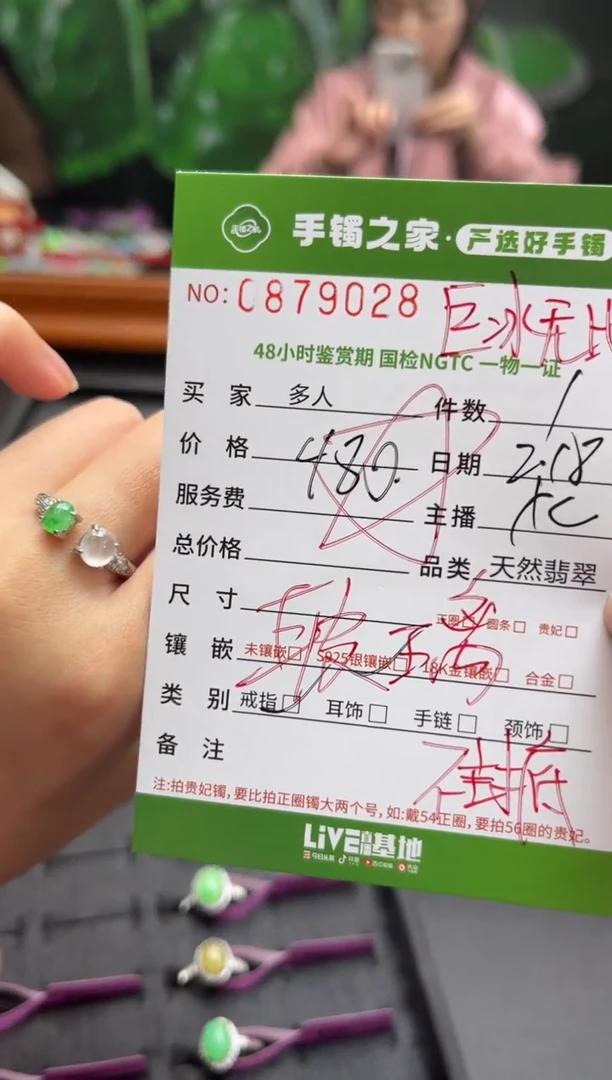 手镯之家·严选好手镯
NO: 0879028 巨冰无比
48小时鉴赏期 国检NGTC 一物一证
买家 多人 件数 1
价格 480. 日期 2.18
服务费 主播
总价格 品类 天然翡翠
尺寸 正圈 圆条 贵妃
镶嵌 未镶嵌 S925银镶嵌 18K金镶嵌 合金
类别 戒指 耳饰 手链 颈饰
备注
注:拍贵妃镯,要比拍正圈镯大两个号,如:戴54正圈,要拍56圈的贵妃。
LiVE直播基地
今日头条 抖音 西瓜视频 火山